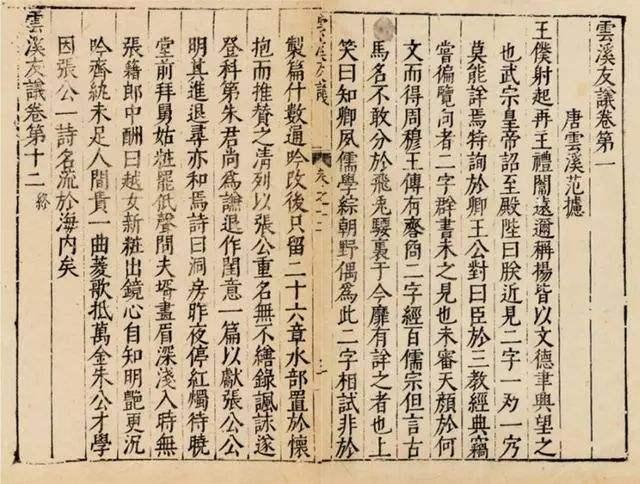 雲溪友議卷第一
唐雲溪范攄
王僕射起再王禮闈遠邇稱揚皆以文德聿興望之
也武宗皇帝詔至殿陛曰朕近見二字一
莫能詳焉特詢於卿王公對曰臣於三教經典竊
嘗徧覽向者二字群書未之見也未審天顏於何
文而得周穆王傳有
二字經百儒宗但言古
馬名不敢分於飛兎騕裊于今靡有詳之者也上
笑曰知卿夙儒學綜朝野偶爲此二字相試非於
雲溪友議
卷之二
製篇什數通吟改後只留二十六章水部置於懷
抱而推賛之清列以張公重名無不繕錄諷詠遂
登科第朱君尚爲謙退作閨意一篇以獻張公公
明其進退尋亦和焉詩曰洞房昨夜停紅燭待曉
堂前拜舅姑粧罷低聲問夫壻畫眉深淺入時無
張籍郎中酬曰越女新粧出鏡心自知明艷更沉
吟齊紈未足人間貴一曲菱歌抵萬金朱公才學
因張公一詩名流於海内矣
雲溪友議卷第十二 終